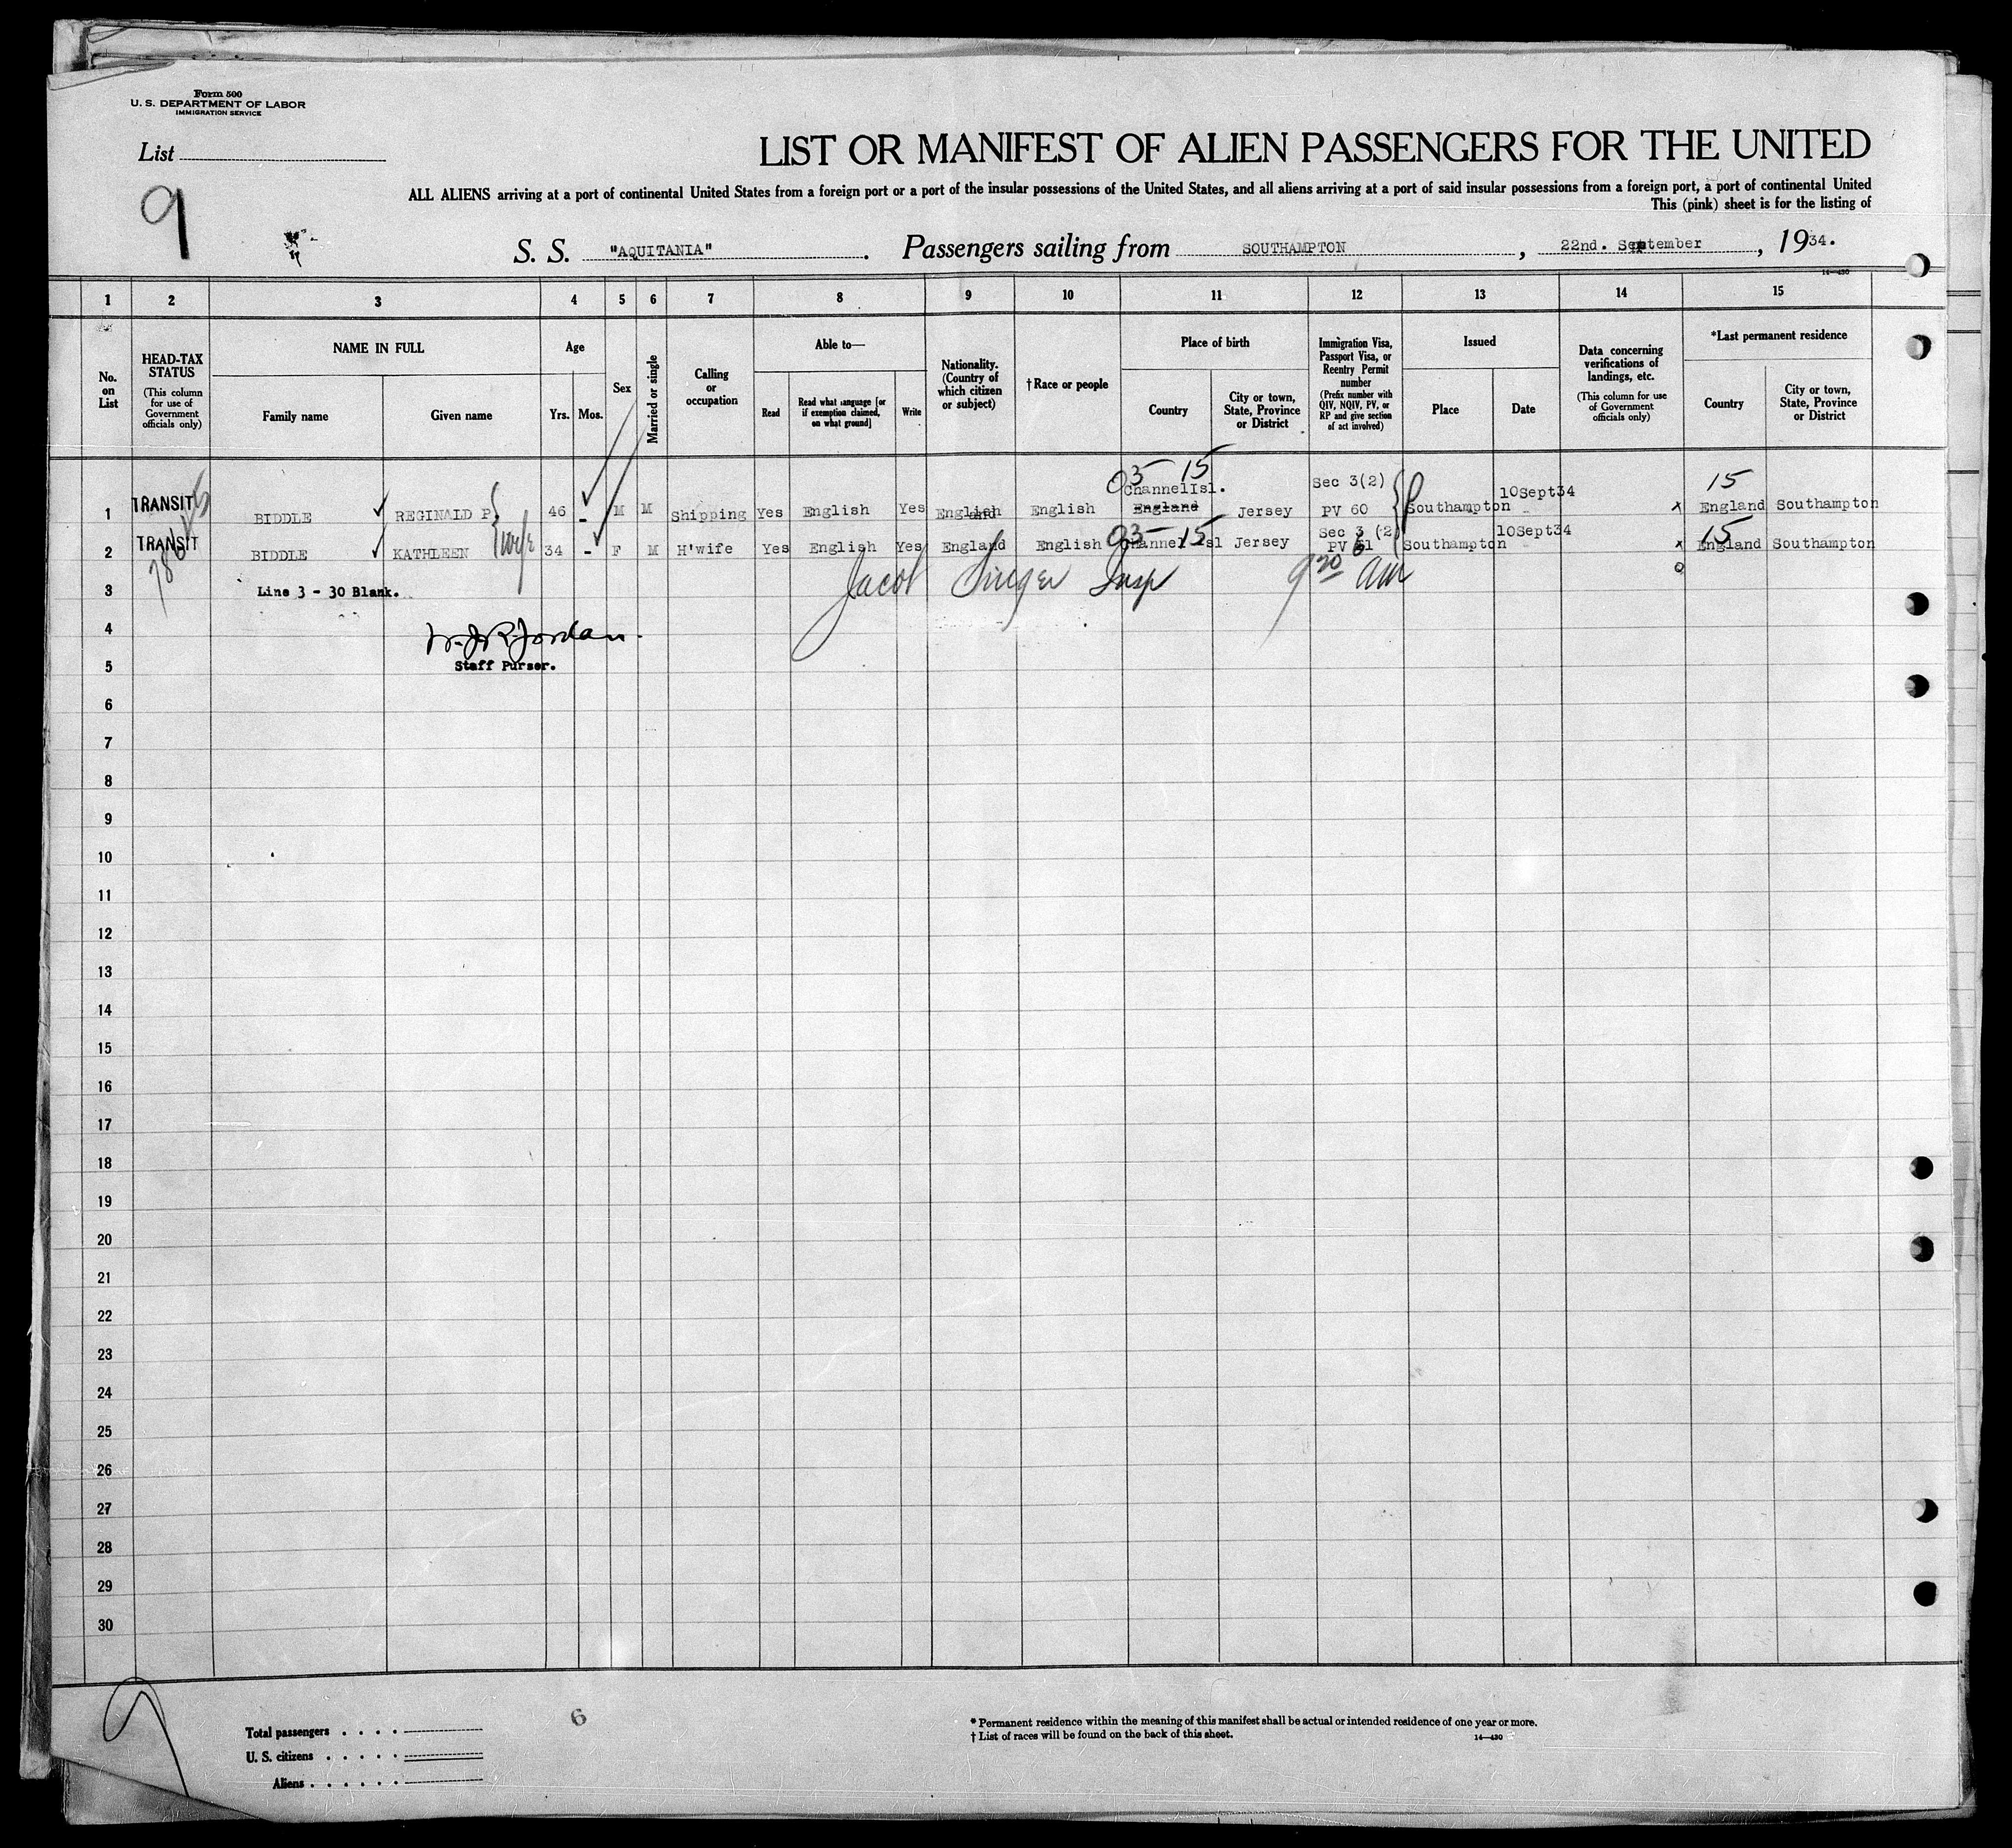 Form 500
U. S. DEPARTMENT OF LABOR
IMMIGRATION SERVICE
List
9
LIST OR MANIFEST OF ALIEN PASSENGERS FOR THE UNITED
ALL ALIENS arriving at a port of continental United States from a foreign port or a port of the insular possessions of the United States, and all aliens arriving at a port of said insular possessions from a foreign port, a port of continental United
This (pink) sheet is for the listing of
S. S. "AQUITANIA". Passengers sailing from SOUTHAMPTON, 22nd. September, 1934.
14-430
1 2 3 4 5 6 7 8 9 10 11 12 13 14 15
No. on List
HEAD-TAX STATUS
(This column for use of Government officials only)
NAME IN FULL
Family name
Given name
Age
Yrs.
Mos.
Sex
Married or single
Calling or occupation
Able to—
Read
Read what language [or if exemption claimed, on what ground]
Write
Nationality. (Country of which citizen or subject)
†Race or people
Place of birth
Country
City or town, State, Province or District
Immigration Visa, Passport Visa, or Reentry Permit number
(Prefix number with QIV, NQIV, PV, or RP and give section of act involved)
Issued
Place
Date
Data concerning verifications of landings, etc.
(This column for use of Government officials only)
*Last permanent residence
Country
City or town, State, Province or District
03 15 15
ChannelIsl. Sec 3(2) 10Sept34
1 TRANSIT BIDDLE REGINALD P. 46 - M M Shipping Yes English Yes England English England Jersey PV 60 Southampton x England Southampton
wife 03 15 Sec 3 (2) 10Sept34 15
2 TRANSIT BIDDLE KATHLEEN 34 - F M H'wife Yes English Yes England English Channel Isl Jersey PV 61 Southampton x England Southampton
3 Line 3 - 30 Blank. Jacob Singer Insp 9 30 am
4 W. J. R. Jordan.
5 Staff Purser.
6
7
8
9
10
11
12
13
14
15
16
17
18
19
20
21
22
23
24
25
26
27
28
29
30
9
6
Total passengers
U. S. citizens
Aliens
* Permanent residence within the meaning of this manifest shall be actual or intended residence of one year or more.
† List of races will be found on the back of this sheet.
14-430